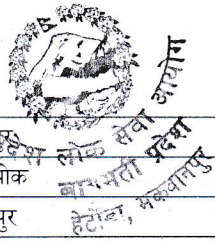 प्रदेश लोक सेवा आयोग
बागमती प्रदेश
हेटौंडा, मकवानपुर
पुर